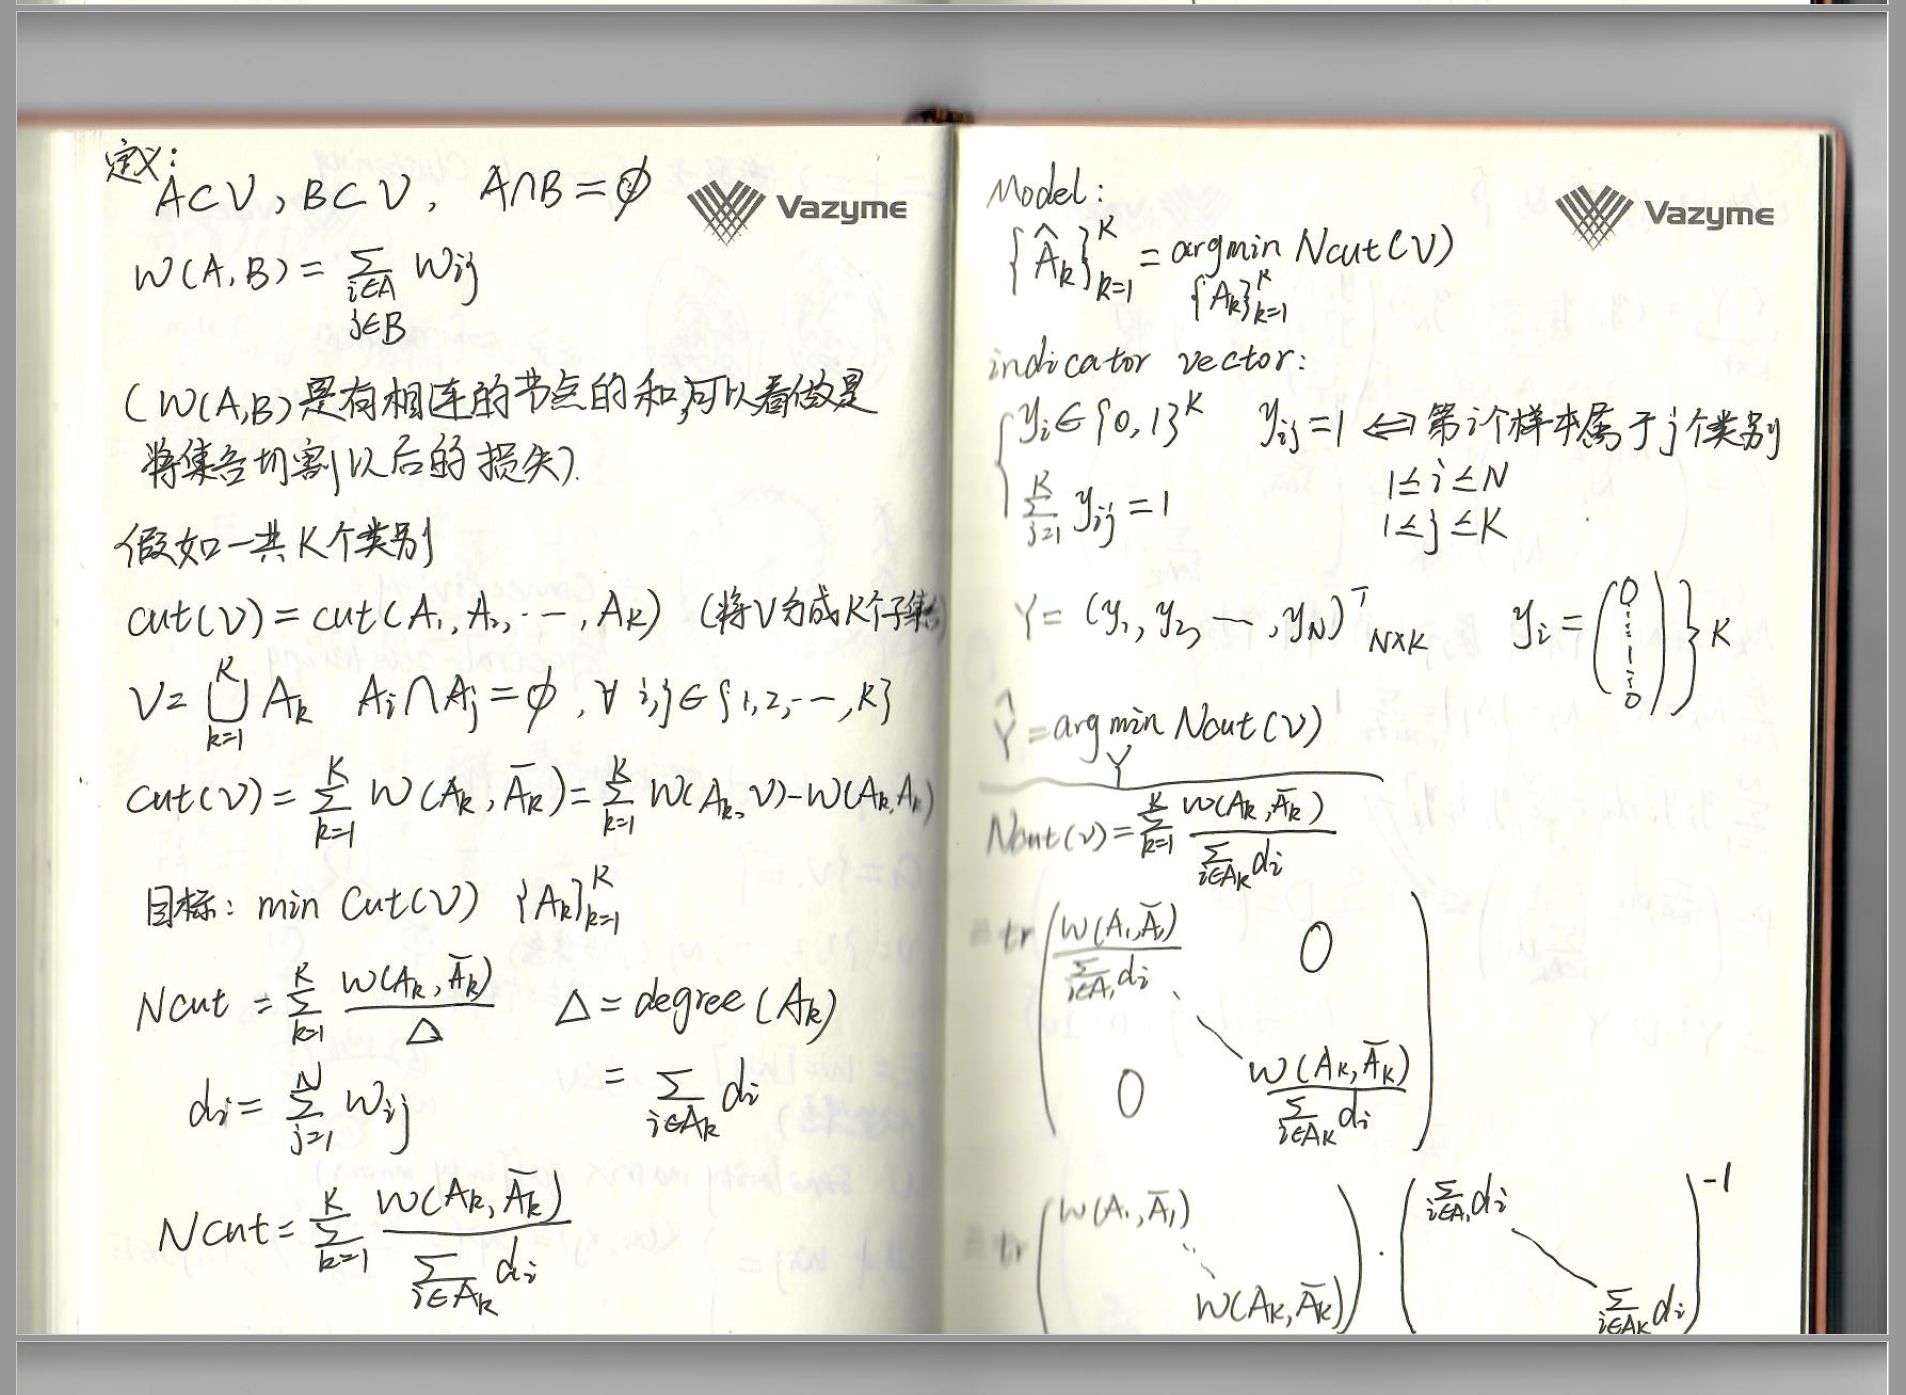 定义:
A⊂V, B⊂V, A∩B=∅
Vazyme
W(A,B) = ∑_{i∈A, j∈B} w_{ij}
(W(A,B)是有相连的节点的和,可以看做是
将集合切割以后的损失).
假如一共K个类别
cut(V) = cut(A_1, A_2, ⋯, A_K) (将V分成K个子集)
V = ⋃_{k=1}^{K} A_k A_i∩A_j=∅, ∀ i,j∈{1,2,⋯,K}
cut(V) = ∑_{k=1}^{K} W(A_k, Ā_k) = ∑_{k=1}^{K} W(A_k, V) - W(A_k, A_k)
目标: min Cut(V) {A_k}_{k=1}^{K}
Ncut = ∑_{k=1}^{K} W(A_k, Ā_k)/Δ Δ = degree(A_k)
d_i = ∑_{j=1}^{N} w_{ij} = ∑_{i∈A_k} d_i
Ncut = ∑_{k=1}^{K} W(A_k, Ā_k)/∑_{i∈A_k} d_i
Model:
Vazyme
{Â_k}_{k=1}^{K} = argmin_{{A_k}_{k=1}^{K}} Ncut(V)
indicator vector:
{ y_i∈{0,1}^K y_{ij}=1 ⇔ 第i个样本属于j个类别
∑_{j=1}^{K} y_{ij} = 1 1≤i≤N
1≤j≤K
Y = (y_1, y_2, ⋯, y_N)^T_{N×K} y_i = (0 ⋮ 1 ⋮ 0)}K
Ŷ = argmin_Y Ncut(V)
Ncut(V) = ∑_{k=1}^{K} W(A_k, Ā_k)/∑_{i∈A_k} d_i
= tr( W(A_1, Ā_1)/∑_{i∈A_1} d_i 0
0 W(A_K, Ā_K)/∑_{i∈A_K} d_i )
= tr( W(A_1, Ā_1) ⋱ W(A_K, Ā_K) ) · ( ∑_{i∈A_1} d_i ⋱ ∑_{i∈A_K} d_i )^{-1}